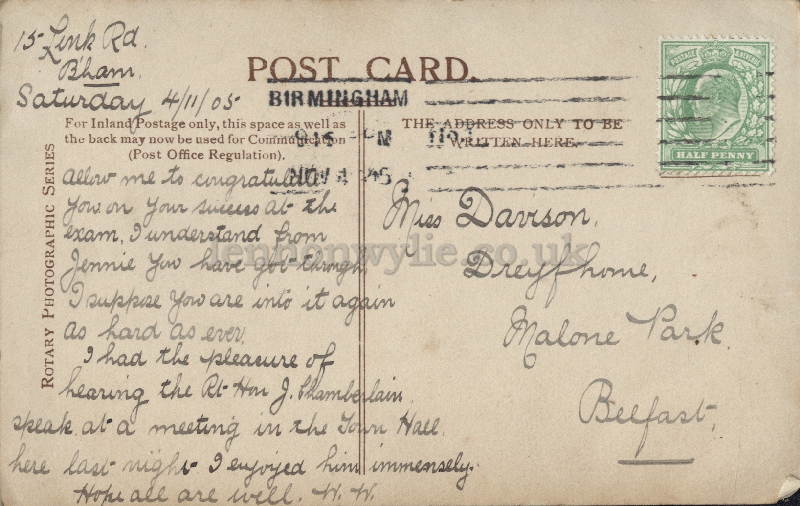 15 Link Rd.
B'ham.
Saturday 4/11/05
POST CARD.
BIRMINGHAM
9 15 PM
NOV 4 05
For Inland Postage only, this space as well as
the back may now be used for Communication
(Post Office Regulation).
THE ADDRESS ONLY TO BE
WRITTEN HERE.
POSTAGE
HALF PENNY
ROTARY PHOTOGRAPHIC SERIES
Allow me to congratulate
you on your success at the
exam, I understand from
Jennie you have got through,
I suppose you are into it again
as hard as ever.
I had the pleasure of
hearing the Rt Hon J. Chamberlain
speak at a meeting in the Town Hall
here last night I enjoyed him immensely.
Hope all are well. W. W.
Miss Davison,
Dreyfhome,
Malone Park.
Belfast,
lennonwylie.co.uk